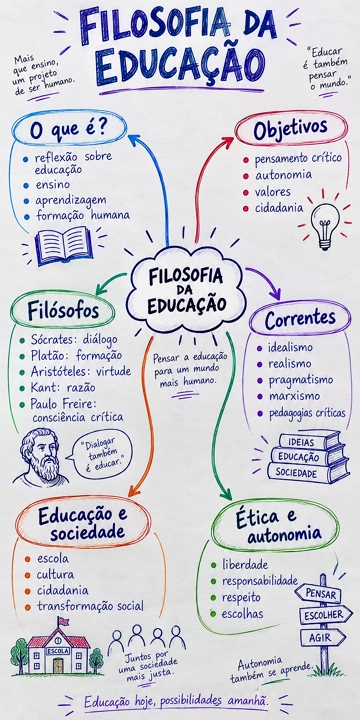 FILOSOFIA DA
EDUCAÇÃO
Mais
que ensino,
um projeto
de ser humano.
"Educar
é também
pensar
o mundo."
O que é?
• reflexão sobre
educação
• ensino
• aprendizagem
• formação humana
Objetivos
• pensamento crítico
• autonomia
• valores
• cidadania
FILOSOFIA
DA
EDUCAÇÃO
Pensar a educação
para um mundo
mais humano.
Filósofos
• Sócrates: diálogo
• Platão: formação
• Aristóteles: virtude
• Kant: razão
• Paulo Freire:
consciência crítica
"Dialogar
também
é educar."
Correntes
• idealismo
• realismo
• pragmatismo
• marxismo
• pedagogias críticas
IDEIAS
EDUCAÇÃO
SOCIEDADE
Educação e
sociedade
• escola
• cultura
• cidadania
• transformação social
ESCOLA
Juntos por
uma sociedade
mais justa.
Ética e
autonomia
• liberdade
• responsabilidade
• respeito
• escolhas
PENSAR
ESCOLHER
AGIR
Autonomia
também se aprende.
Educação hoje, possibilidades amanhã.